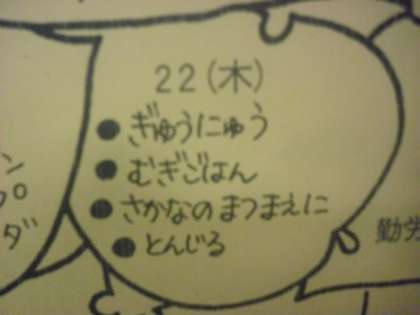 22(木)
●ぎゅうにゅう
●むぎごはん
●さかなのまつまえに
●とんじる
ン
プロ
ダ
勤労